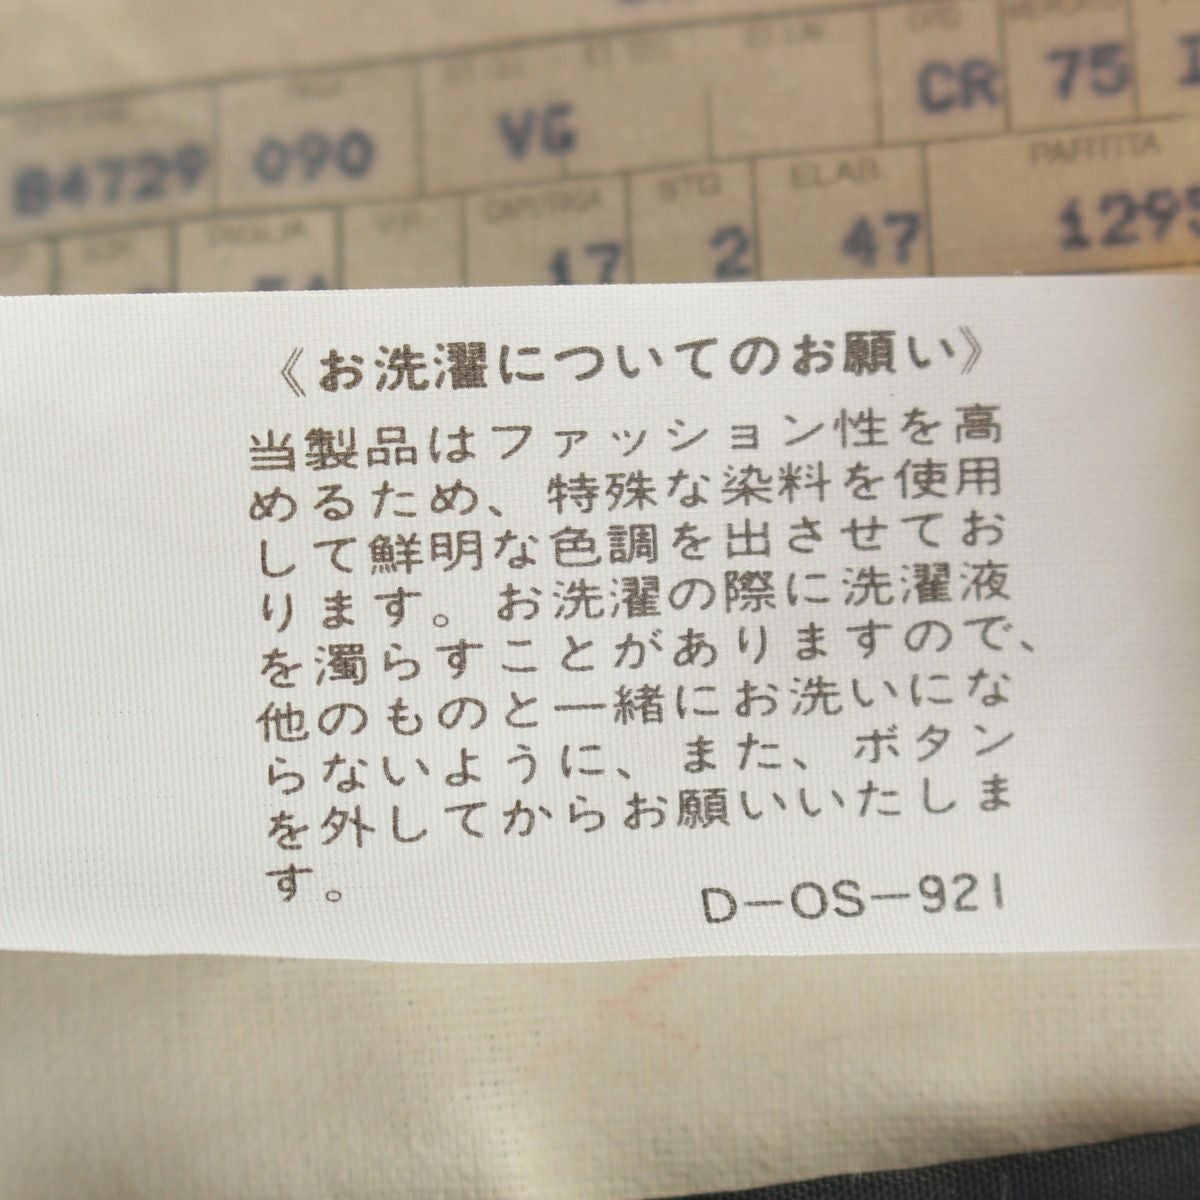 CR 75
84729 090 VG
PARTITA
STG ELAB.
17 2 47
《お洗濯についてのお願い》
当製品はファッション性を高
めるため、特殊な染料を使用
して鮮明な色調を出させてお
ります。お洗濯の際に洗濯液
を濁らすことがありますので、
他のものと一緒にお洗いにな
らないように、また、ボタン
を外してからお願いいたしま
す。
D-OS-921